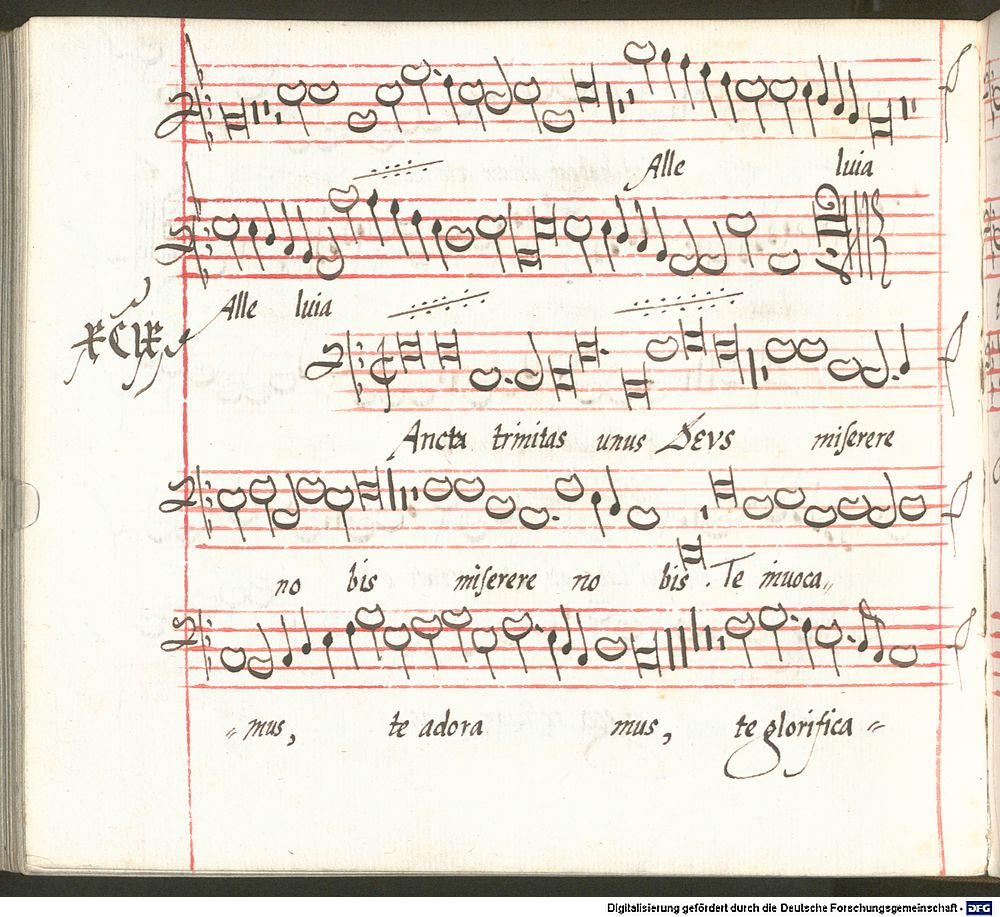 Alle luia
Alle luia
XCIX
Ancta trinitas unus Deus miserere
no bis miserere no bis. Te inuoca„
„mus, te adora mus, te glorifica„
Digitalisierung gefördert durch die Deutsche Forschungsgemeinschaft - DFG